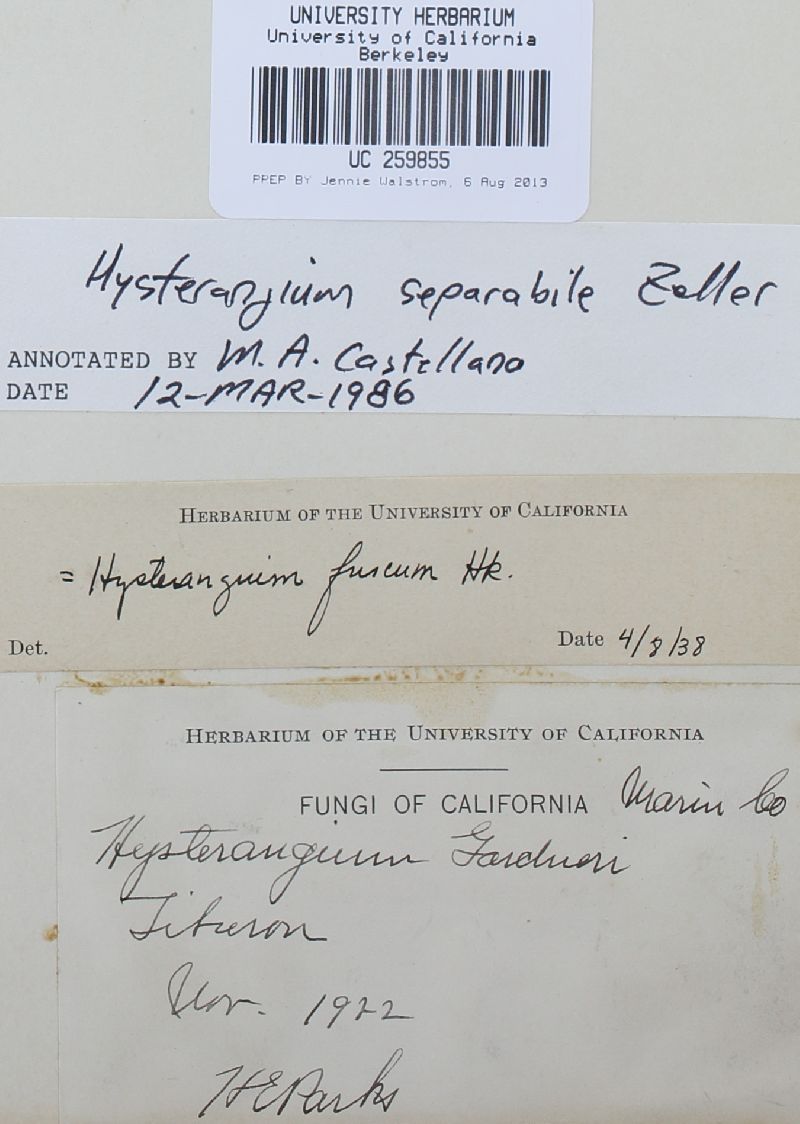 UNIVERSITY HERBARIUM
University of California
Berkeley
UC 259855
PREP BY Jennie Walstrom, 6 Aug 2013
Hysterangium separabile Zeller
ANNOTATED BY M. A. Castellano
DATE 12-MAR-1986
HERBARIUM OF THE UNIVERSITY OF CALIFORNIA
= Hysterangium fuscum Hk.
Det. Date 4/8/38
HERBARIUM OF THE UNIVERSITY OF CALIFORNIA
FUNGI OF CALIFORNIA Marin Co
Hysterangium Gardneri
Tiburon
Nov. 1922
H E Parks